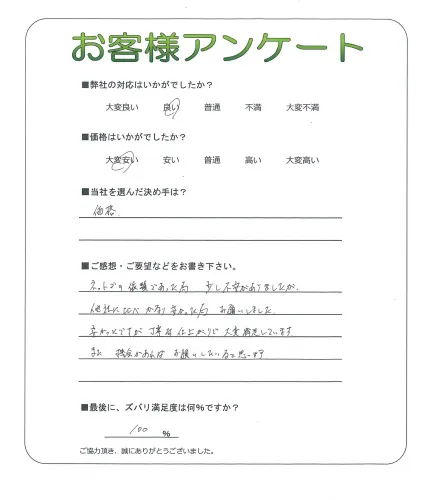 お客様アンケート
■弊社の対応はいかがでしたか？
大変良い 良い 普通 不満 大変不満
■価格はいかがでしたか？
大変安い 安い 普通 高い 大変高い
■当社を選んだ決め手は？
価格
■ご感想・ご要望などをお書き下さい。
ネットでの依頼であった為 少し不安がありましたが、
他社に比べ かなり安かった為 お願いしました。
安かったですが 丁寧な仕上がりで 大変満足しています。
また 機会があれば お願いしたいと思います
■最後に、ズバリ満足度は何％ですか？
100 ％
ご協力頂き、誠にありがとうございました。